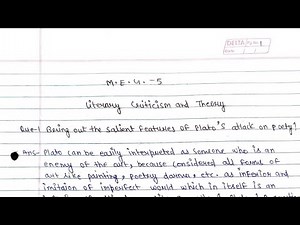 M.E.G.-5
Literary Criticism and Theory
Que-1 Bring out the salient features of Plato's attack on poetry?
Ans- Plato can be easily interpreted as someone who is an
enemy of the art, because considered all forms of
art like painting, poetry drama, etc. as inferior and
imitation of imperfect world which in itself is an